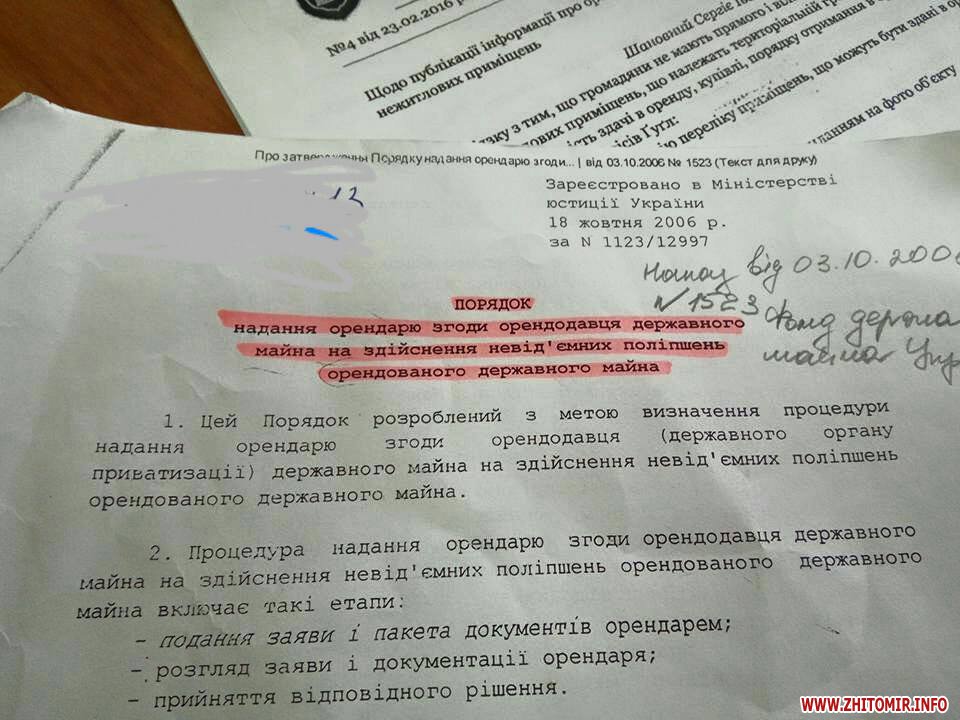 №4 від 23.02.2016
Щодо публікації інформації про
нежитлових приміщень
Шановний Сергіє
з тим, що громадяни не мають прямого і
приміщень, що належать територіальній
здачі в оренду, купівлі, порядку отримання в
Гугл:
переліку приміщень, що можуть бути здані в
на фото об'єкту
Про затвердження Порядку надання орендарю згоди... | від 03.10.2006 № 1523 (Текст для друку)
13
Зареєстровано в Міністерстві
юстиції України
18 жовтня 2006 р.
за N 1123/12997
Наказ від 03.10.2006
N 1523 Фонд держ
майна Укр
ПОРЯДОК
надання орендарю згоди орендодавця державного
майна на здійснення невід'ємних поліпшень
орендованого державного майна
1. Цей Порядок розроблений з метою визначення процедури
надання орендарю згоди орендодавця (державного органу
приватизації) державного майна на здійснення невід'ємних поліпшень
орендованого державного майна.
2. Процедура надання орендарю згоди орендодавця державного
майна на здійснення невід'ємних поліпшень орендованого державного
майна включає такі етапи:
- подання заяви і пакета документів орендарем;
- розгляд заяви і документації орендаря;
- прийняття відповідного рішення.
WWW.ZHITOMIR.INFO